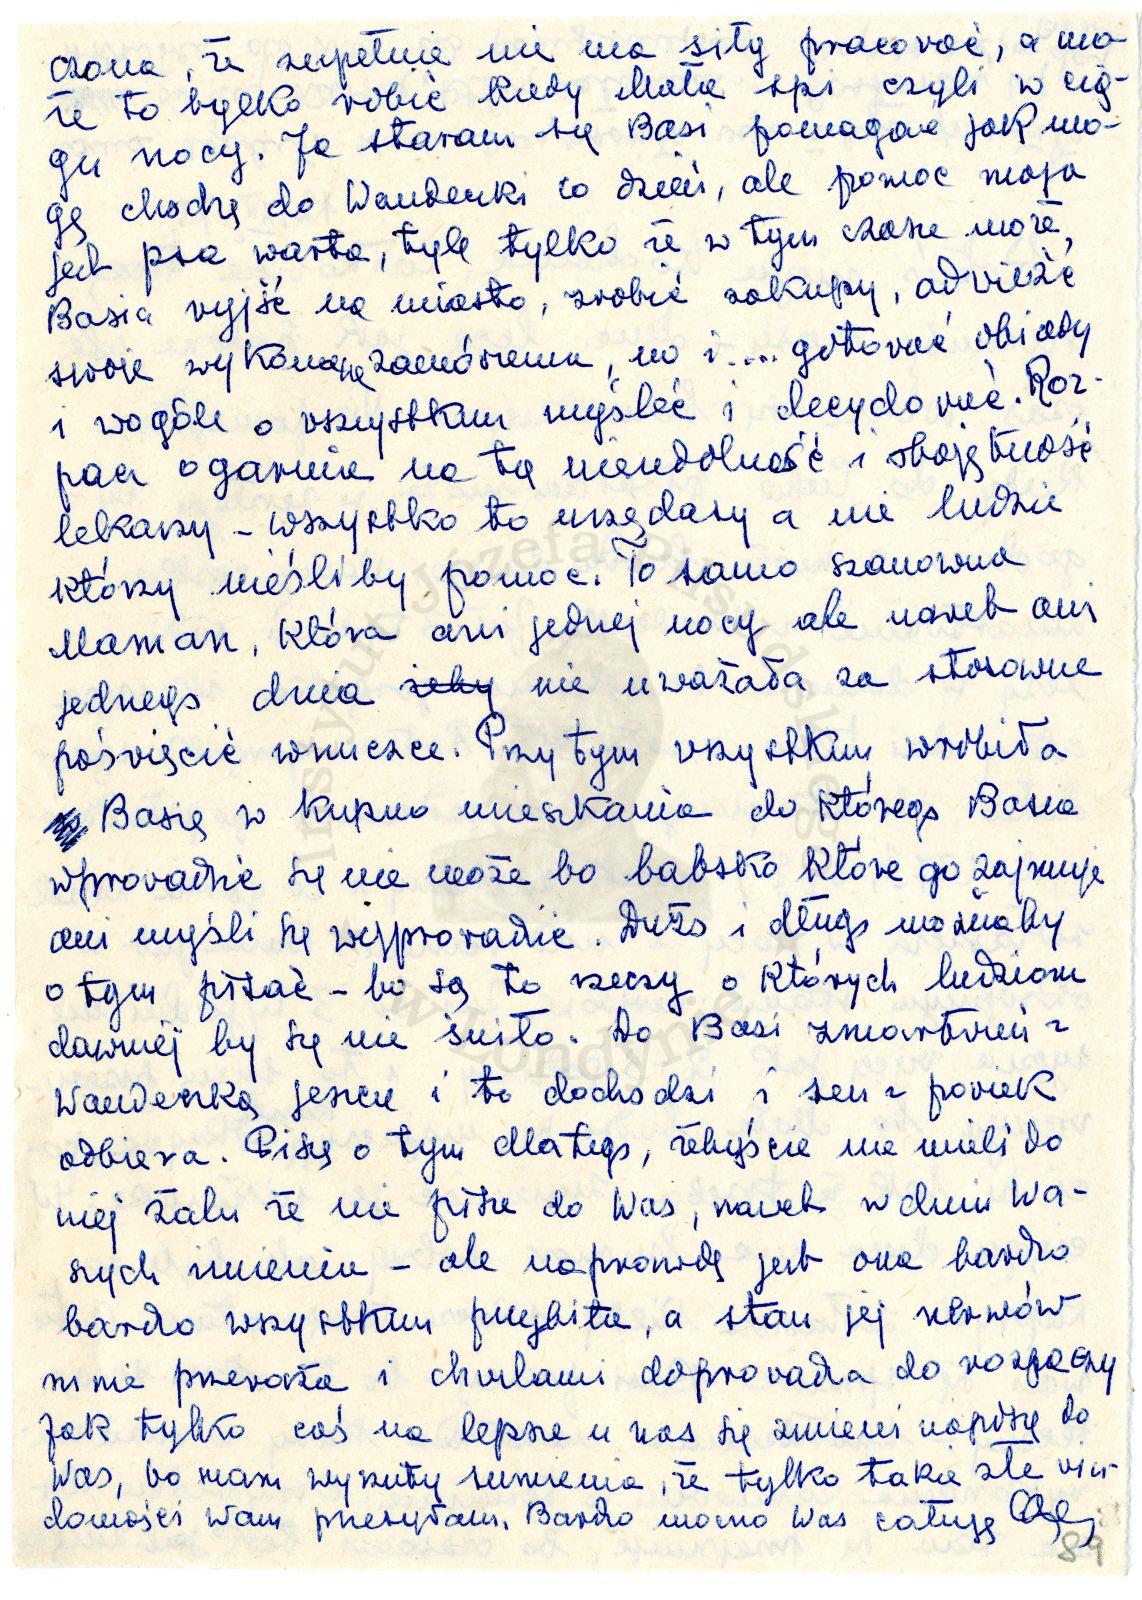 czona, że zupełnie nie ma siły pracować, a mo-
że to tylko robić kiedy Mała spi czyli w cią-
gu nocy. Ja staram się Basi pomagać jak mo-
gę chodzę do Wandeczki co dzień, ale pomoc moja
jest psa warta, tyle tylko że w tym czasie może,
Basia wyjść na miasto, zrobić zakupy, odwieźć
swoje wykonane zamówienia, no i .... gotować obiady
i wogóle o wszystkim myśleć i decydować. Roz-
pacz ogarnia na tę nieudolność i obojętność
lekarzy – wszystko to urzędasy a nie ludzie
którzy nieśliby pomoc. To samo szanowna
Maman, która ani jednej nocy ale nawet ani
jednego dnia żeby nie uważała za stosowne
poświęcić wnuczce. Przy tym wszystkim wrobiła
Basię w kupno mieszkania do którego Basia
wprowadzić się nie może bo babsko które go zajmuje
ani myśli się wyprowadzić. Dużo i długo możnaby
o tym pisać – bo są to rzeczy o których ludziom
dawniej by się nie śniło. Do Basi zmartwień z
Wandeczką jeszcze i to dochodzi i sen z powiek
odbiera. Piszę o tym dlatego, żebyście nie mieli do
niej żalu że nie pisze do Was, nawet w dniu Wa-
szych imienin – ale naprawdę jest ona bardzo
bardzo wszystkim przybita, a stan jej nerwów
mnie przeraża i chwilami doprowadza do rozpaczy
Jak tylko coś na lepsze u nas się zmieni napiszę do
Was, bo mam wyrzuty sumienia, że tylko takie złe wia-
domości Wam przesyłam. Bardzo mocno Was całuję
89
Instytut Józefa Piłsudskiego
w Londynie